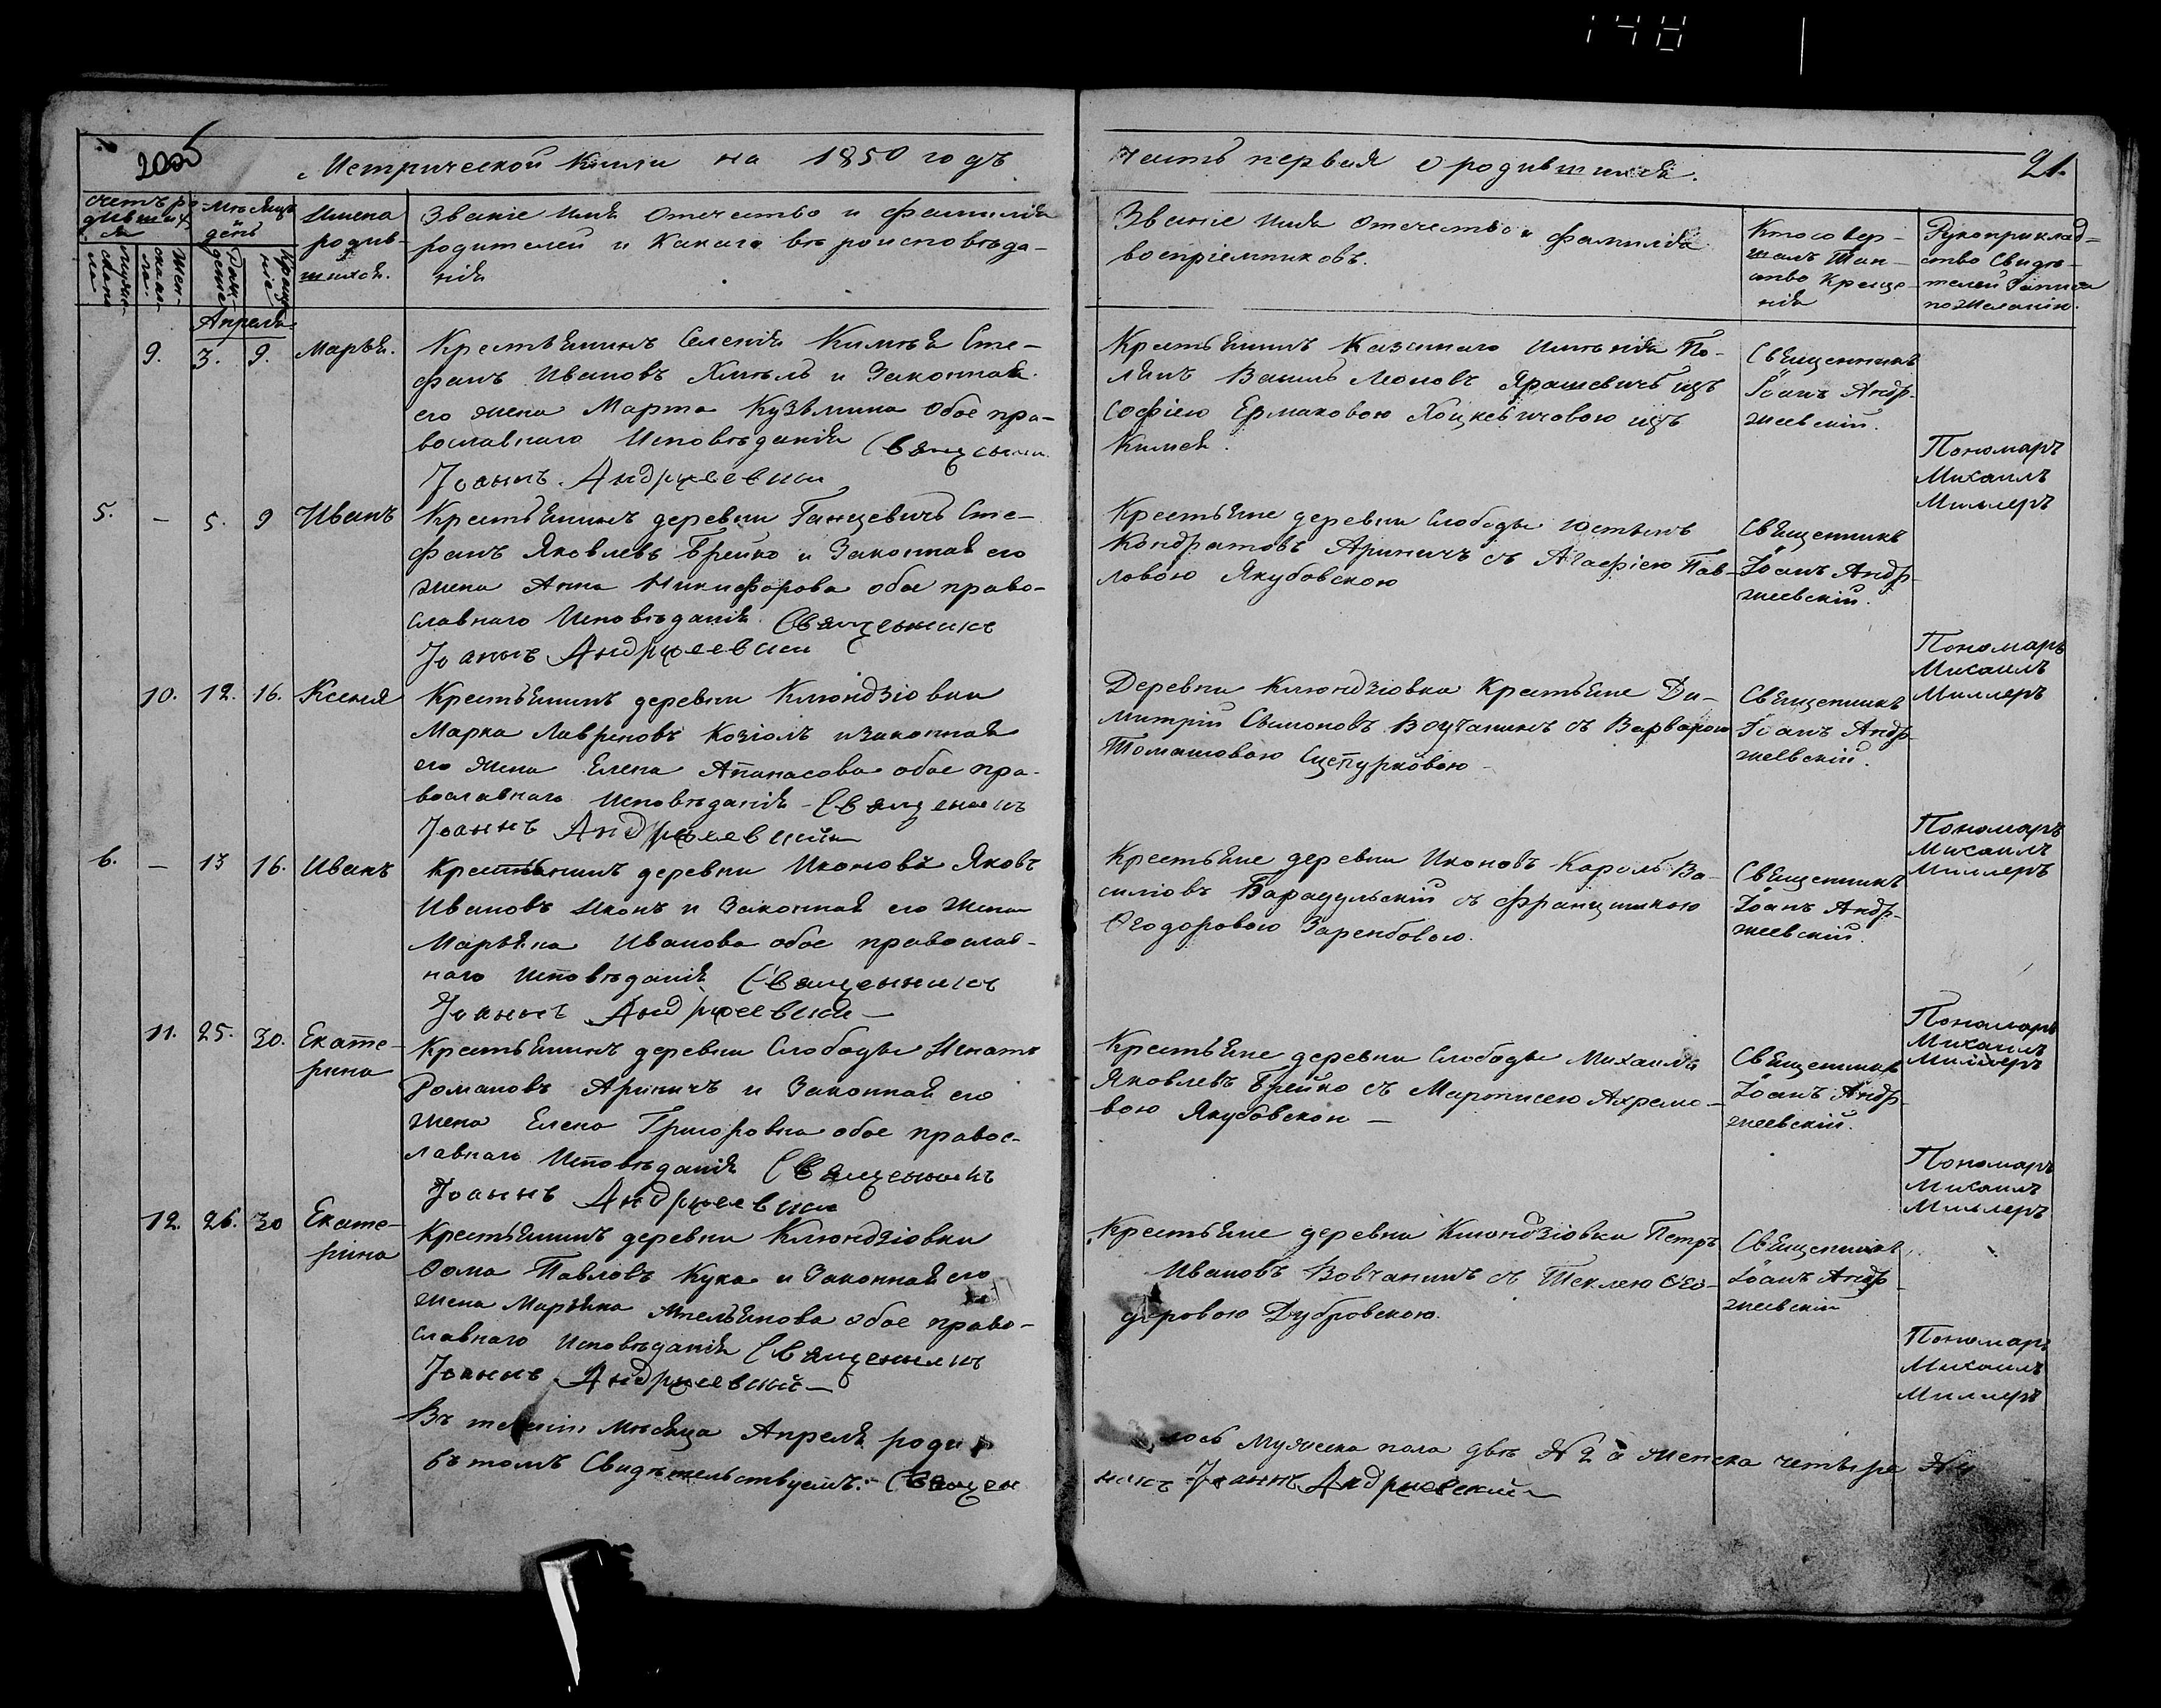 148
Метрической Книги на 1850 годъ
часть первая о родившихся.
21.
счетъ ро-
дивших-
ся
Мѣсяцъ
и
день
Имена
родив-
шихся.
Званіе Имя Отечество и фамилія
родителей и Какаго вѣроисповѣда-
нія
Званіе Имя Отечество и фамилія
воспріемниковъ.
Кто совер-
шалъ Таин-
ство Креще-
нія
Рукоприклад-
ство Свидѣ-
телей Записи
по Желанію.
Апреля
9. 3. 9. Марья.
Крестьянинъ Селенія Кимея Сте-
фанъ Ивановъ Хмѣль и Законная
его жена Марта Кузьмина Обое пра-
вославнаго Исповѣданія Священни
Іоаннъ Андржеевски
Крестьянинъ Казеннаго Имѣнія По-
лянъ Василь Леоновъ Ярашевичъ изъ
Софіею Ермаковою Хоцкевичовою изъ
Кимея.
Священникъ
Іоанъ Андр-
жеевскій.
Пономаръ
Михаилъ
Миллеръ
5. — 5. 9 Иванъ
Крестьянинъ деревни Ганцевичъ Сте-
фанъ Яковлевъ Брейко и Законная его
жена Анна Никифорова обое право-
славнаго Исповѣданія Священникъ
Іоаннъ Андржеевски
Крестьяне деревни Слободы Юстынъ
Кондратовъ Ариничъ съ Агафіею Пав-
ловою Якубовскою
Священникъ
Іоанъ Андр-
жеевскій.
Пономаръ
Михаилъ
Миллеръ
10. 12. 16. Ксенія
Крестьянинъ деревни Клюндзіовки
Марка Лавреновъ Козіолъ и Законная
его жена Елена Апанасова обое пра-
вославнаго Исповѣданія - Священникъ
Іоаннъ Андржеевский
Деревни Клюндзіовки Крестьяне Ди-
митрій Сымоновъ Воучанинъ съ Варварою
Томашовою
Священникъ
Іоанъ Андр-
жеевскій.
Пономаръ
Михаилъ
Миллеръ
6. — 13 16. Иванъ
Крестьянинъ деревни Иконовъ Яковъ
Ивановъ Иконъ и Законная его Жена
Марьяна Иванова обое православ-
наго Исповѣданія Священникъ
Іоаннъ Андржеевски
Крестьяне деревни Иконовъ Кароль Ва-
силіовъ Барадульскій съ Францишкою
Ѳеодоровою Зарембовою.
Священникъ
Іоанъ Андр-
жеевскій.
Пономаръ
Михаилъ
Миллеръ
11. 25. 30. Екате-
рина
Крестьянинъ деревни Слободы Игнатъ
Романовъ Ариничъ и Законная его
жена Елена Григоровна обое правос-
лавнаго Исповѣданія Священникъ
Іоаннъ Андржеевски
Крестьяне деревни Слободы Михаилъ
Яковлевъ Брейко съ Мартисею Ахремо-
вою Якубовскою —
Священникъ
Іоанъ Андр-
жеевскій.
Пономаръ
Михаилъ
Миллеръ
12. 26. 30 Екате-
рина
Крестьянинъ деревни Клюндзіовки
Ѳома Павловъ Кука и Законная его
жена Марьяна обое право-
славнаго Исповѣданія Священникъ
Іоаннъ Андржеевский —
Крестьяне деревни Клюндзіовки Петръ
Ивановъ Вовчанинъ съ Теклею Ѳео-
доровою Дубровскою.
Священникъ
Іоанъ Андр-
жеевскій
Пономаръ
Михаилъ
Миллеръ
Въ теченіи Мѣсяца Апреля роди лось Мужеска пола двѣ № 2 а Женска четыре № 4
Въ томъ Свидѣтельствуемъ: Священ никъ Іоаннъ Андржеевский